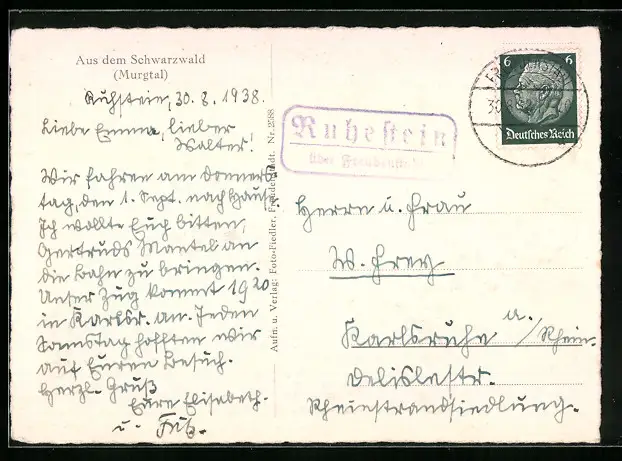 Aus dem Schwarzwald
(Murgtal)
Ruhstein, 30. 8. 1938.
Liebe Emma, lieber
Walter!
Wir fahren am Donners-
tag, den 1. Sept. nach Hause.
Ich wollte Euch bitten,
Gertruds Mantel an
die Bahn zu bringen.
Unser Zug kommt 19 20
in Karlsr. an. Jeden
Samstag hofften wir
auf Euren Besuch.
Herzl. Gruß
Eure Elisabeth.
u. Fritz.
Aufn. u. Verlag: Foto-Fiedler, Freudenstadt. Nr. 2088
Ruhestein
über Freudenstadt
6 6
Deutsches Reich
Herrn u. Frau
W. Frey
Karlsruhe a./Rhein.
Delislestr.
Rheinstrandsiedlung.